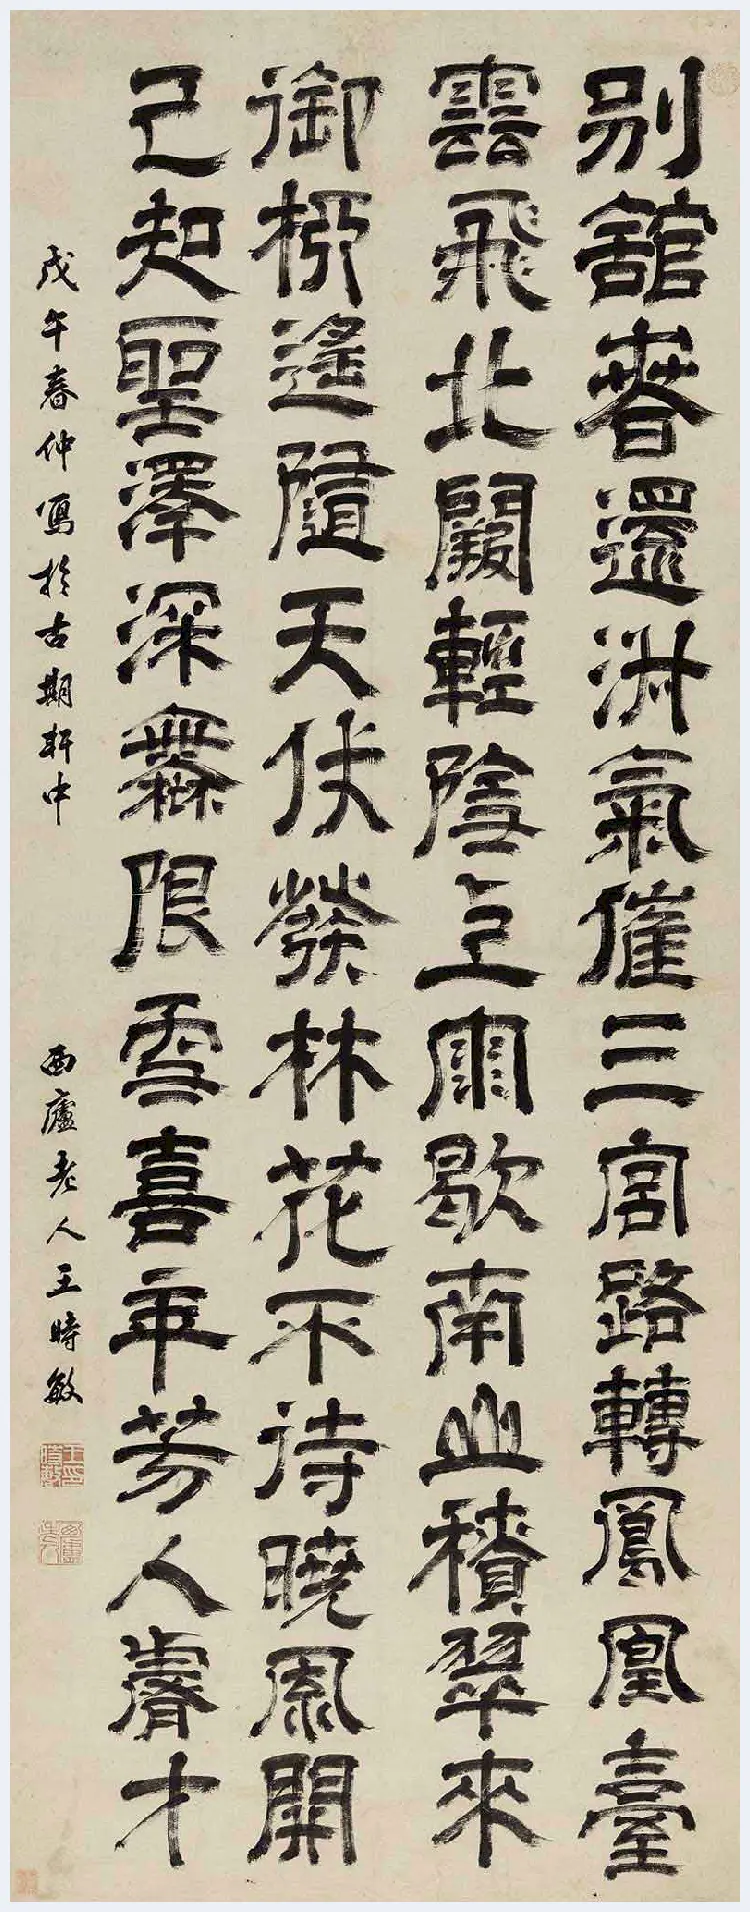 別館春還淑氣催三宮路轉鳳凰臺
雲飛北闕輕陰雨歇南山積翠來
御柳遙隨天仗發林花不待曉風開
已知聖澤深無限雪喜年芳入睿才
戊午春仲寫於古期軒中 西廬老人王時敏
王時敏印
西廬老人